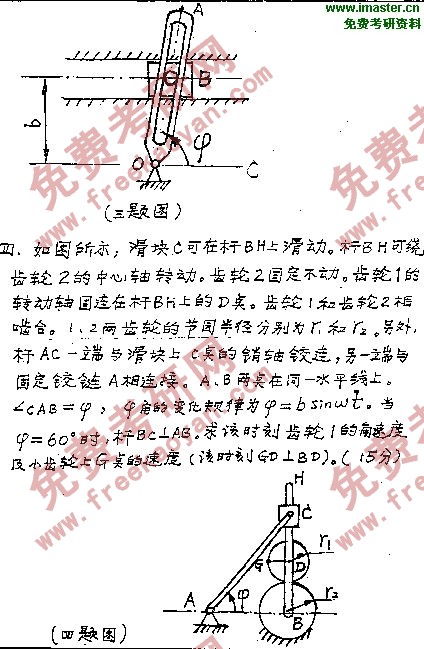 www.imaster.cn
免费考研资料
A
B
b
φ
O
C
(三题图)
四、如图所示,滑块C可在杆BH上滑动。杆BH可绕
齿轮2的中心轴转动。齿轮2固定不动。齿轮1的
转动轴固连在杆BH上的D点。齿轮1和齿轮2相
啮合。1、2两齿轮的节圆半径分别为r₁和r₂。另外,
杆AC一端与滑块上C点的销轴铰连,另一端与
固定铰链A相连接。A、B两点在同一水平线上。
∠CAB=φ, φ角的变化规律为φ=b sinωt。当
φ=60°时,杆BC⊥AB。求该时刻齿轮1的角速度
及小齿轮上G点的速度(该时刻GD⊥BD)。(15分)
H
C
r₁
G
D
r₂
A
φ
B
(四题图)
免费考研网
www.freekaoyan.com
免费考研网
www.freekaoyan.com
免费考研网
www.freekaoyan.com
免费考研网
www.freekaoyan.com